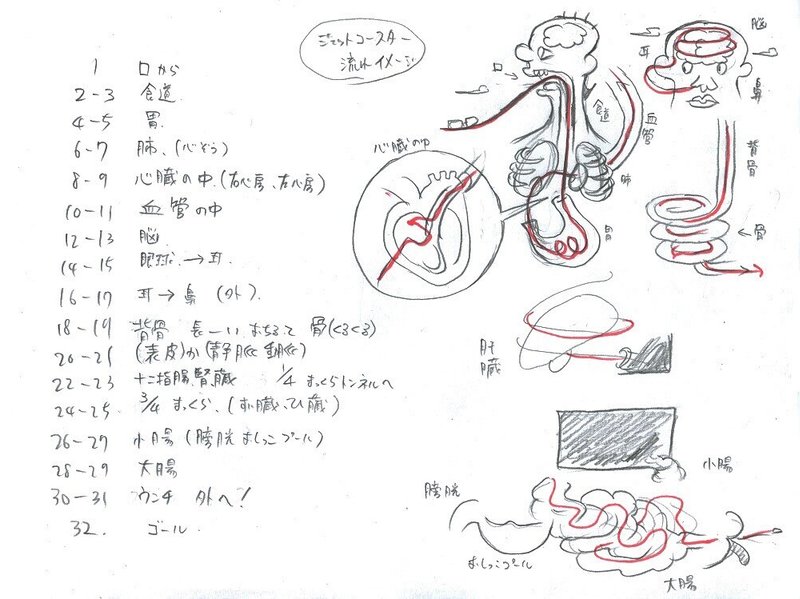 ジェットコースター
流れイメージ
1 口から
2-3 食道
4-5 胃
6-7 肺、(心ぞう)
8-9 心臓の中、(右心房、左心房)
10-11 血管の中
12-13 脳
14-15 眼球→耳
16-17 耳→鼻 (外)
18-19 背骨 長ーい おちるで 骨(くるくる)
20-21 (表皮)か(静脈 動脈)
22-23 十二指腸、腎臓 1/4 まっくらトンネルへ
24-25 3/4 まっくら、(すい臓、ひ臓)
26-27 小腸(膀胱おしっこプール)
28-29 大腸
30-31 ウンチ 外へ!
32. ゴール
口
食道
血管
肺
胃
心臓の中
脳
耳
鼻
背骨
←骨
肝臓
小腸
膀胱
おしっこプール
大腸